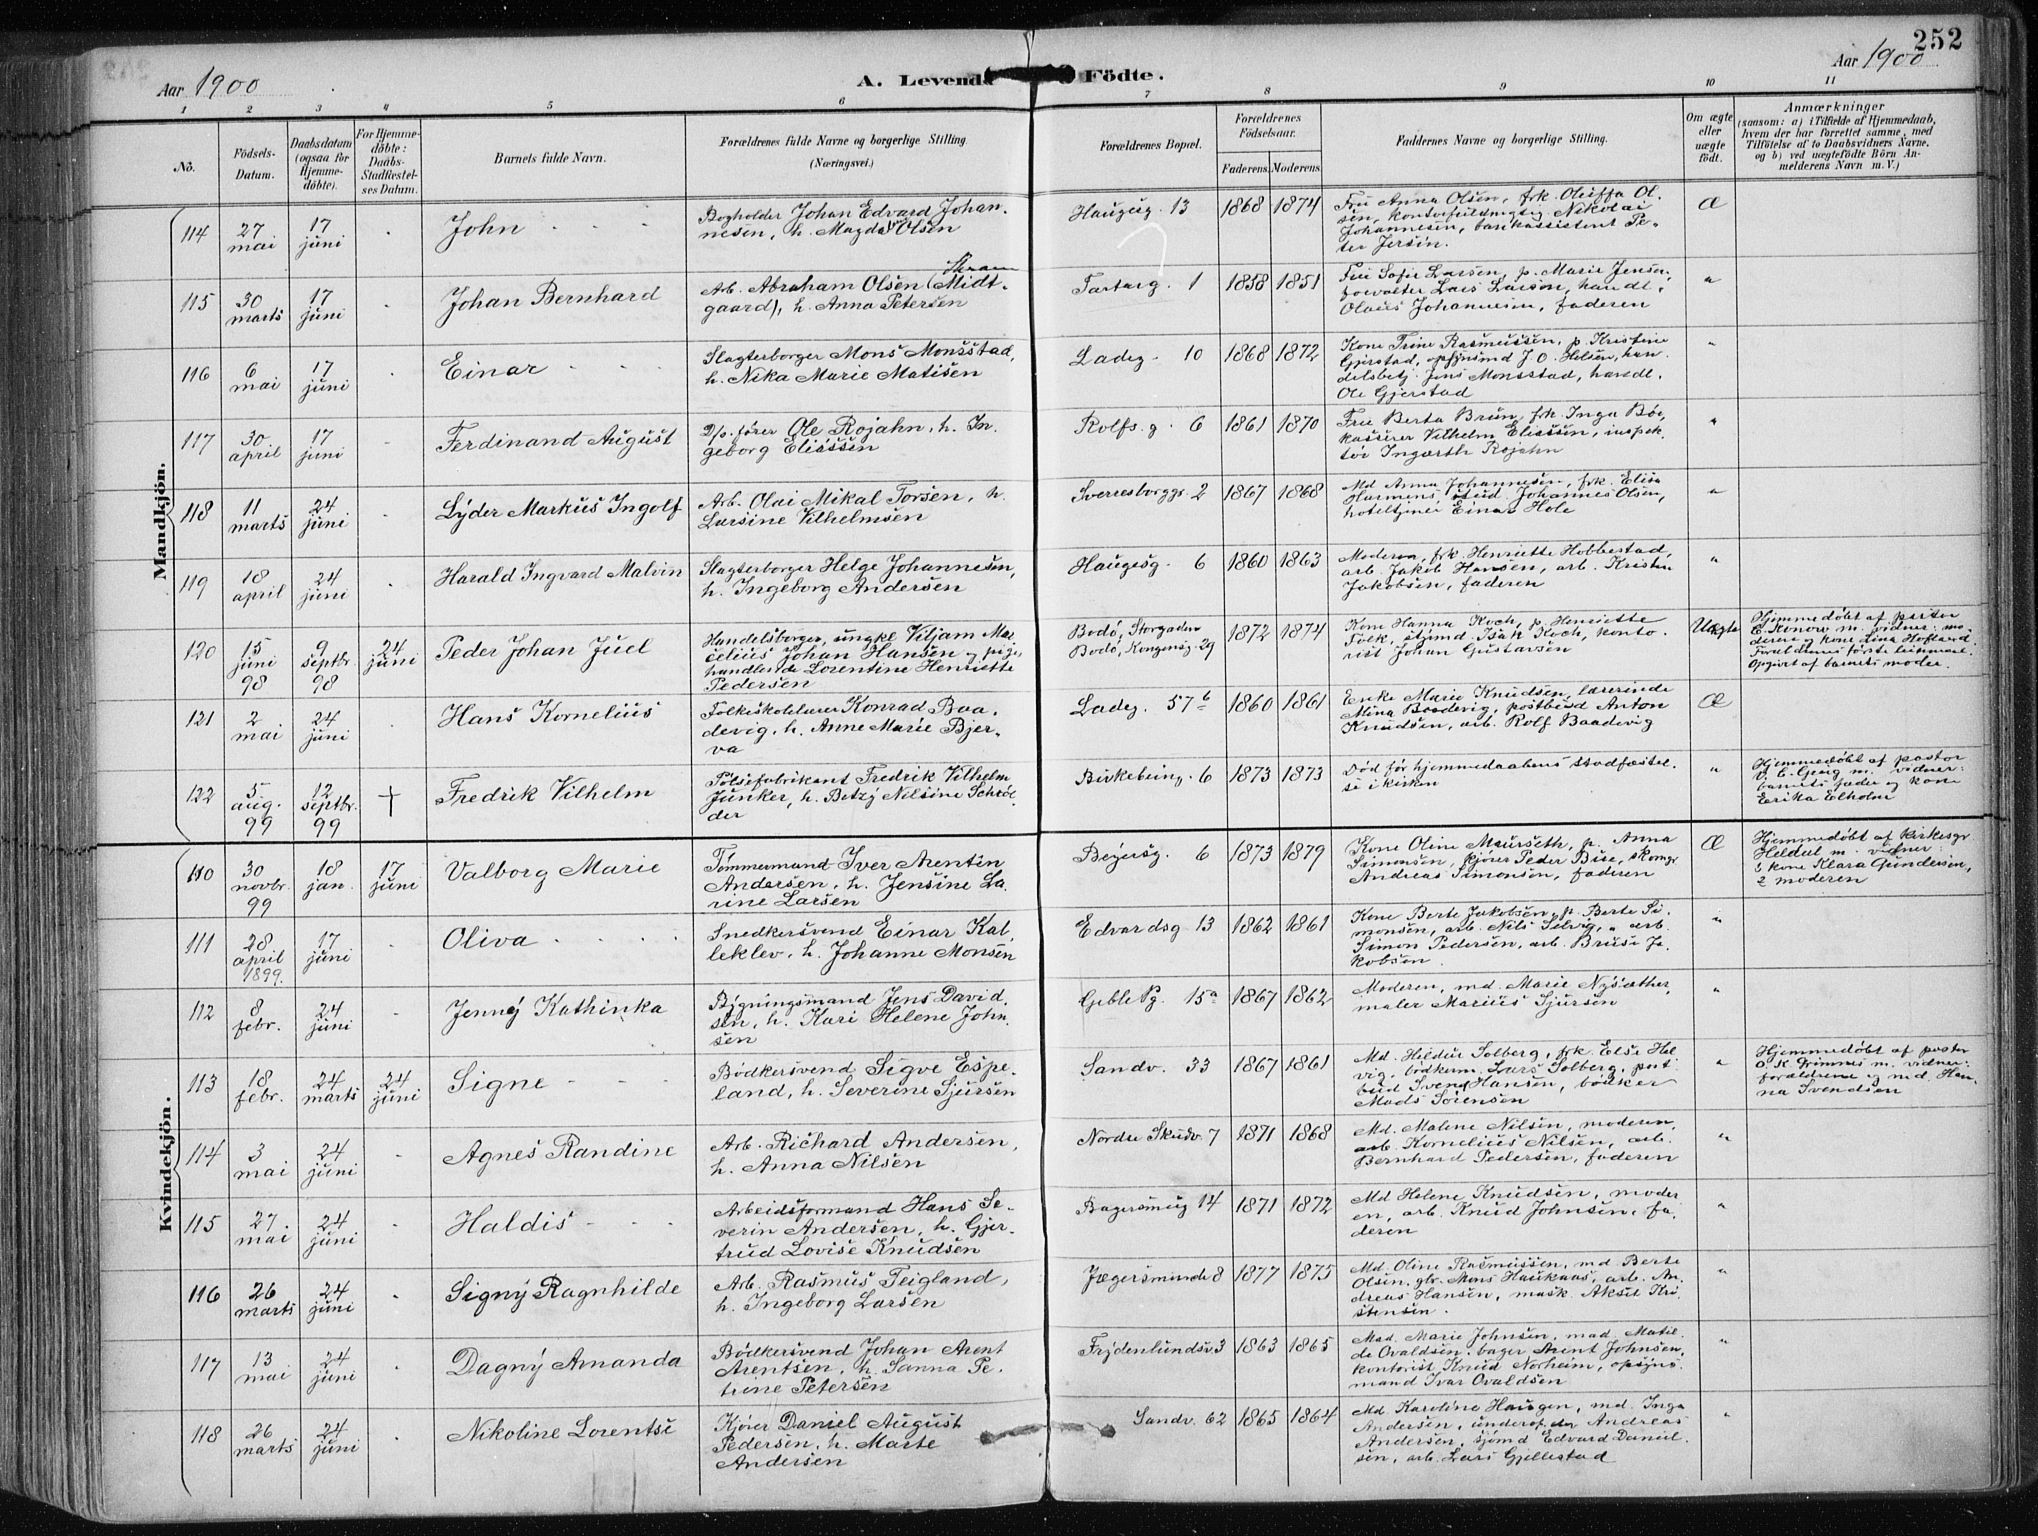 252
Aar 1900
A. Levende Födte.
Aar 1900
1 2 3 4 5 6 7 8 9 10 11
No.
Födsels-Datum.
Daabsdatum (ogsaa for Hjemme-döbte).
For Hjemme-döbte: Daabs-Stadfæstel-ses Datum.
Barnets fulde Navn.
Forældrenes fulde Navne og borgerlige Stilling (Næringsvei.)
Forældrenes Bopæl.
Forældrenes Födselsaar.
Faderens. Moderens.
Faddernes Navne og borgerlige Stilling.
Om ægte eller uægte födt.
Anmærkninger
(saasom: a) i Tilfælde af Hjemmedaab,
hvem der har forrettet samme, med
Tilföielse af to Daabsvidners Navne.
og b) ved uægtefödte Börn An-
melderens Navn m. V.)
Mandkjön.
114 27 mai 17 juni John
Bogholder Johan Edvard Johan-
nesen, h. Magda Olsen
Haugeg. 13 1868 1874
Fru Anna Olsen, frk. Oleffa Ol-
sen, kontorfuldmægtig Nikolai
Johannesen, bankassistent Pe-
ter Jersin.
Æ
115 30 marts 17 juni Johan Bernhard
Skram
Arb. Abraham Olsen (Midt-
gaard), h. Anna Petersen
Tartarg. 1 1858 1851
Fru Sofie Larsen, p. Marie Jensen,
forvalter Lars Larsen, handl.
Olaus Johannesen, faderen
"
116 6 mai 17 juni Einar
Slagterborger Mons Monsstad,
h. Nika Marie Matisen
Ladeg. 10 1868 1872
Kone Trine Rasmussen, p. Kristine
Gjerstad, opsynsmd J. O. Helsen, han-
delsbetj. Jens Monsstad, handl.
Ole Gjerstad
"
117 30 april 17 juni Ferdinand August
D/p. fører Ole Rojahn, h. In-
geborg Eliassen
Rolfs. g. 6 1861 1870
Fru Berta Brun, frk. Inga Bøe,
kasserer Vilhelm Eliassen, inspek-
tør Ingarth Rojahn
"
118 11 marts 24 juni Lyder Markus Ingolf
Arb. Olai Mikal Torsen, h.
Larsine Vilhelmsen
Sverresborggr. 2 1867 1868
Md Anna Johannesen, frk. Elisa
Harmens, stud. Johannes Olsen,
hoteltjener Einar Hole
"
119 18 april 24 juni Harald Ingvard Malvin
Slagterborger Helge Johannesen,
h. Ingeborg Andersen
Haugesg. 6 1860 1863
Moderen, frk. Henriette Hobbestad,
arb. Jakob Hansen, arb. Kristen
Jakobsen, faderen
"
120 15 juni 98 9 septbr. 98 24 juni Peder Johan Juel
Handelsborger, ungkl. Viljam Mar-
celius Johan Hansen og pige,
handlende Lorentine Henriette
Pedersen
Bodö, Storgaden
Bodö, Kongensg. 29 1872 1874
Kone Hanna Koch, p. Henriette
Falk, styrmd Isak Koch, konto-
rist Johan Gustavsen
Uægte
Hjemmedøbt af pastor
E. Konow m. vidner: mo-
deren og kone Lina Hofland
Forældrenes første leiermaal.
Opgivet af barnets moder.
121 2 mai 24 juni Hans Kornelius
Folkeskolelærer Konrad Baa-
devig, h. Anne Marie Bjer-
va
Ladeg. 57 b 1860 1861
Enke Marie Knudsen, lærerinde
Mina Baadevig, postbud Anton
Knudsen, arb. Rolf Baadevig
Æ
122 5 aug. 99 12 septbr. 99 † Fredrik Vilhelm
Pølsefabrikant Fredrik Vilhelm
Junker, h. Betzy Nilsine Schrö-
der
Birkebeing. 6 1873 1873
Død før hjemmedaabens stadfæstel-
se i kirken
"
Hjemmedøbt af pastor
m. vidner:
barnets fader og kone
Erika Elholm
Kvindekjön.
110 30 novbr. 99 18 jan. 17 juni Valborg Marie
Tømmermand Iver Arentin
Andersen, h. Jensine La-
rine Larsen
Bøgersg. 6 1873 1879
Kone Oline Maurseth, p. Anna
Simonsen, kjører Peder Bise, skomgr.
Andreas Simonsen, faderen
Æ
Hjemmedøbt af kirkesgr.
Heldal m. vidner:
1 kone Klara Gundersen,
2 moderen
111 28 april 1899. 17 juni Oliva
Snedkersvend Einar Kal-
leklev, h. Johanne Monsen
Edvardsg 13 1862 1861
Kone Berte Jakobsen, p. Berte Si-
monsen, arb. Nils Selvig, arb.
Simon Pedersen, arb. Bruse Ja-
kobsen
"
112 8 febr. 24 juni Jenny Kathinka
Bygningsmand Jens David-
sen, h. Kari Helene John-
sen
Geble Pg. 15a 1867 1862
Moderen, md. Marie Nysæther,
maler Marius Sjursen
"
113 18 febr. 24 marts 24 juni Signe
Bødkersvend Sigve Espe-
land, h. Severine Sjursen
Sandv. 33 1867 1861
Md. Hildur Solberg, frk. Else Hel-
vig, bødkerm. Lars Solberg, post-
bud Svend Hansen, bødker
Mads Sörensen
"
Hjemmedøbt af pastor
O. K. Grimnes m. vidner:
forældrene og md. Han-
na Svendsen
114 3 mai 24 juni Agnes Randine
Arb. Richard Andersen,
h. Anna Nilsen
Nordre Skudv. 7 1871 1868
Md. Malene Nilsen, moderen,
arb. Kornelius Nilsen, arb.
Bernhard Pedersen, faderen
"
115 27 mai 24 juni Haldis
Arbeidsformand Hans Se-
verin Andersen, h. Gjer-
trud Lovise Knudsen
Bagersmug 14 1871 1872
Md Helene Knudsen, moder-
en, arb. Knud Johnsen, fa-
deren
"
116 26 marts 24 juni Signy Ragnhilde
Arb. Rasmus Teigland,
h. Ingeborg Larsen
Jægersminde 8 1877 1875
Md. Oline Rasmussen, md Berte
Olsen, gbr. Mons Haukaas, arb. An-
dreas Hansen, mask. Aksel Kri-
stensen.
"
117 13 mai 24 juni Dagny Amanda
Bødkersvend Johan Arent
Arentsen, h. Sanna Pe-
trine Petersen
Frydenlundsv. 3 1863 1865
Mad. Marie Johnsen, mad. Matil-
de Ovaldsen, bager Arent Johnsen,
kontorist Knud Norheim, opsyns-
mand Ivar Ovaldsen
"
118 26 marts 24 juni Nikoline Lorentse
Kjører Daniel August
Pedersen, h. Marte
Andersen
Sandv. 62 1865 1864
Md. Karoline Haugen, md. Inga
Andersen, underof. Andreas
Andersen, sjømd Edvard Daniel-
sen, arb. Lars Gjellestad
"